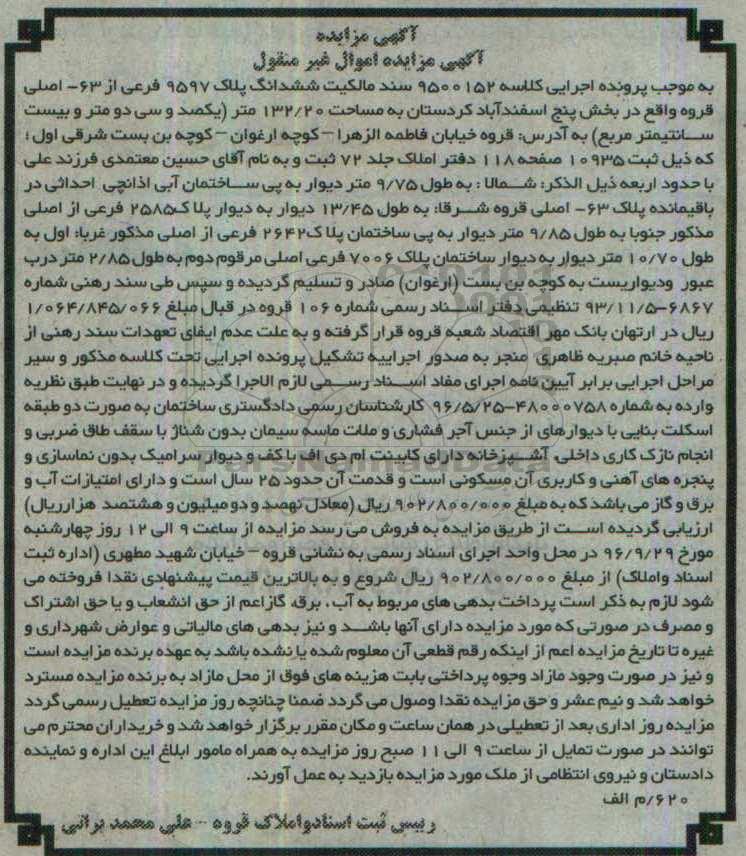 آگهی مزایده
آگهی مزایده اموال غیر منقول
به موجب پرونده اجرایی کلاسه ۹۵۰۰۱۵۲ سند مالکیت ششدانگ پلاک ۹۵۹۷ فرعی از ۶۳- اصلی
قروه واقع در بخش پنج اسفندآباد کردستان به مساحت ۱۳۲/۲۰ متر (یکصد و سی دو متر و بیست
سانتیمتر مربع) به آدرس: قروه خیابان فاطمه الزهرا – کوچه ارغوان – کوچه بن بست شرقی اول ؛
که ذیل ثبت ۱۰۹۳۵ صفحه ۱۱۸ دفتر املاک جلد ۷۲ ثبت و به نام آقای حسین معتمدی فرزند علی
با حدود اربعه ذیل الذکر: شمالا : به طول ۹/۷۵ متر دیوار به پی ساختمان آبی اذانچی احداثی در
باقیمانده پلاک ۶۳- اصلی قروه شرقا: به طول ۱۳/۴۵ دیوار به دیوار پلا ک۲۵۸۵ فرعی از اصلی
مذکور جنوبا به طول ۹/۸۵ متر دیوار به پی ساختمان پلا ک۲۶۴۲ فرعی از اصلی مذکور غربا: اول به
طول ۱۰/۷۰ متر دیوار به دیوار ساختمان پلاک ۷۰۰۶ فرعی اصلی مرقوم دوم به طول ۲/۸۵ متر درب
عبور ودیواریست به کوچه بن بست (ارغوان) صادر و تسلیم گردیده و سپس طی سند رهنی شماره
۶۸۶۷-۹۳/۱۱/۵ تنظیمی دفتر اسناد رسمی شماره ۱۰۶ قروه در قبال مبلغ ۱/۰۶۴/۸۴۵/۰۶۶
ریال در ارتهان بانک مهر اقتصاد شعبه قروه قرار گرفته و به علت عدم ایفای تعهدات سند رهنی از
ناحیه خانم صبریه ظاهری منجر به صدور اجراییه تشکیل پرونده اجرایی تحت کلاسه مذکور و سیر
مراحل اجرایی برابر آیین نامه اجرای مفاد اسناد رسمی لازم الاجرا گردیده و در نهایت طبق نظریه
وارده به شماره ۴۸۰۰۰۷۵۸-۹۶/۵/۲۵ کارشناسان رسمی دادگستری ساختمان به صورت دو طبقه
اسکلت بنایی با دیوارهای از جنس آجر فشاری و ملات ماسه سیمان بدون شناژ با سقف طاق ضربی و
انجام نازک کاری داخلی. آشپزخانه دارای کابینت ام دی اف با کف و دیوار سرامیک بدون نماسازی و
پنجره های آهنی و کاربری آن مسکونی است و قدمت آن حدود ۲۵ سال است و دارای امتیازات آب و
برق و گاز می باشد که به مبلغ ۹۰۲/۸۰۰/۰۰۰ ریال (معادل نهصد و دو میلیون و هشتصد هزارریال)
ارزیابی گردیده است از طریق مزایده به فروش می رسد مزایده از ساعت ۹ الی ۱۲ روز چهارشنبه
مورخ ۹۶/۹/۲۹ در محل واحد اجرای اسناد رسمی به نشانی قروه – خیابان شهید مطهری (اداره ثبت
اسناد واملاک) از مبلغ ۹۰۲/۸۰۰/۰۰۰ ریال شروع و به بالاترین قیمت پیشنهادی نقدا فروخته می
شود لازم به ذکر است پرداخت بدهی های مربوط به آب ، برق، گازاعم از حق انشعاب و یا حق اشتراک
و مصرف در صورتی که مورد مزایده دارای آنها باشد و نیز بدهی های مالیاتی و عوارض شهرداری و
غیره تا تاریخ مزایده اعم از اینکه رقم قطعی آن معلوم شده یا نشده باشد به عهده برنده مزایده است
و نیز در صورت وجود مازاد وجوه پرداختی بابت هزینه های فوق از محل مازاد به برنده مزایده مسترد
خواهد شد و نیم عشر و حق مزایده نقدا وصول می گردد ضمنا چنانچه روز مزایده تعطیل رسمی گردد
مزایده روز اداری بعد از تعطیلی در همان ساعت و مکان مقرر برگزار خواهد شد و خریداران محترم می
توانند در صورت تمایل از ساعت ۹ الی ۱۱ صبح روز مزایده به همراه مامور ابلاغ این اداره و نماینده
دادستان و نیروی انتظامی از ملک مورد مزایده بازدید به عمل آورند.
۶۲۰/م الف
رییس ثبت اسنادواملاک قروه – علی محمد براتی
ParsNamadData